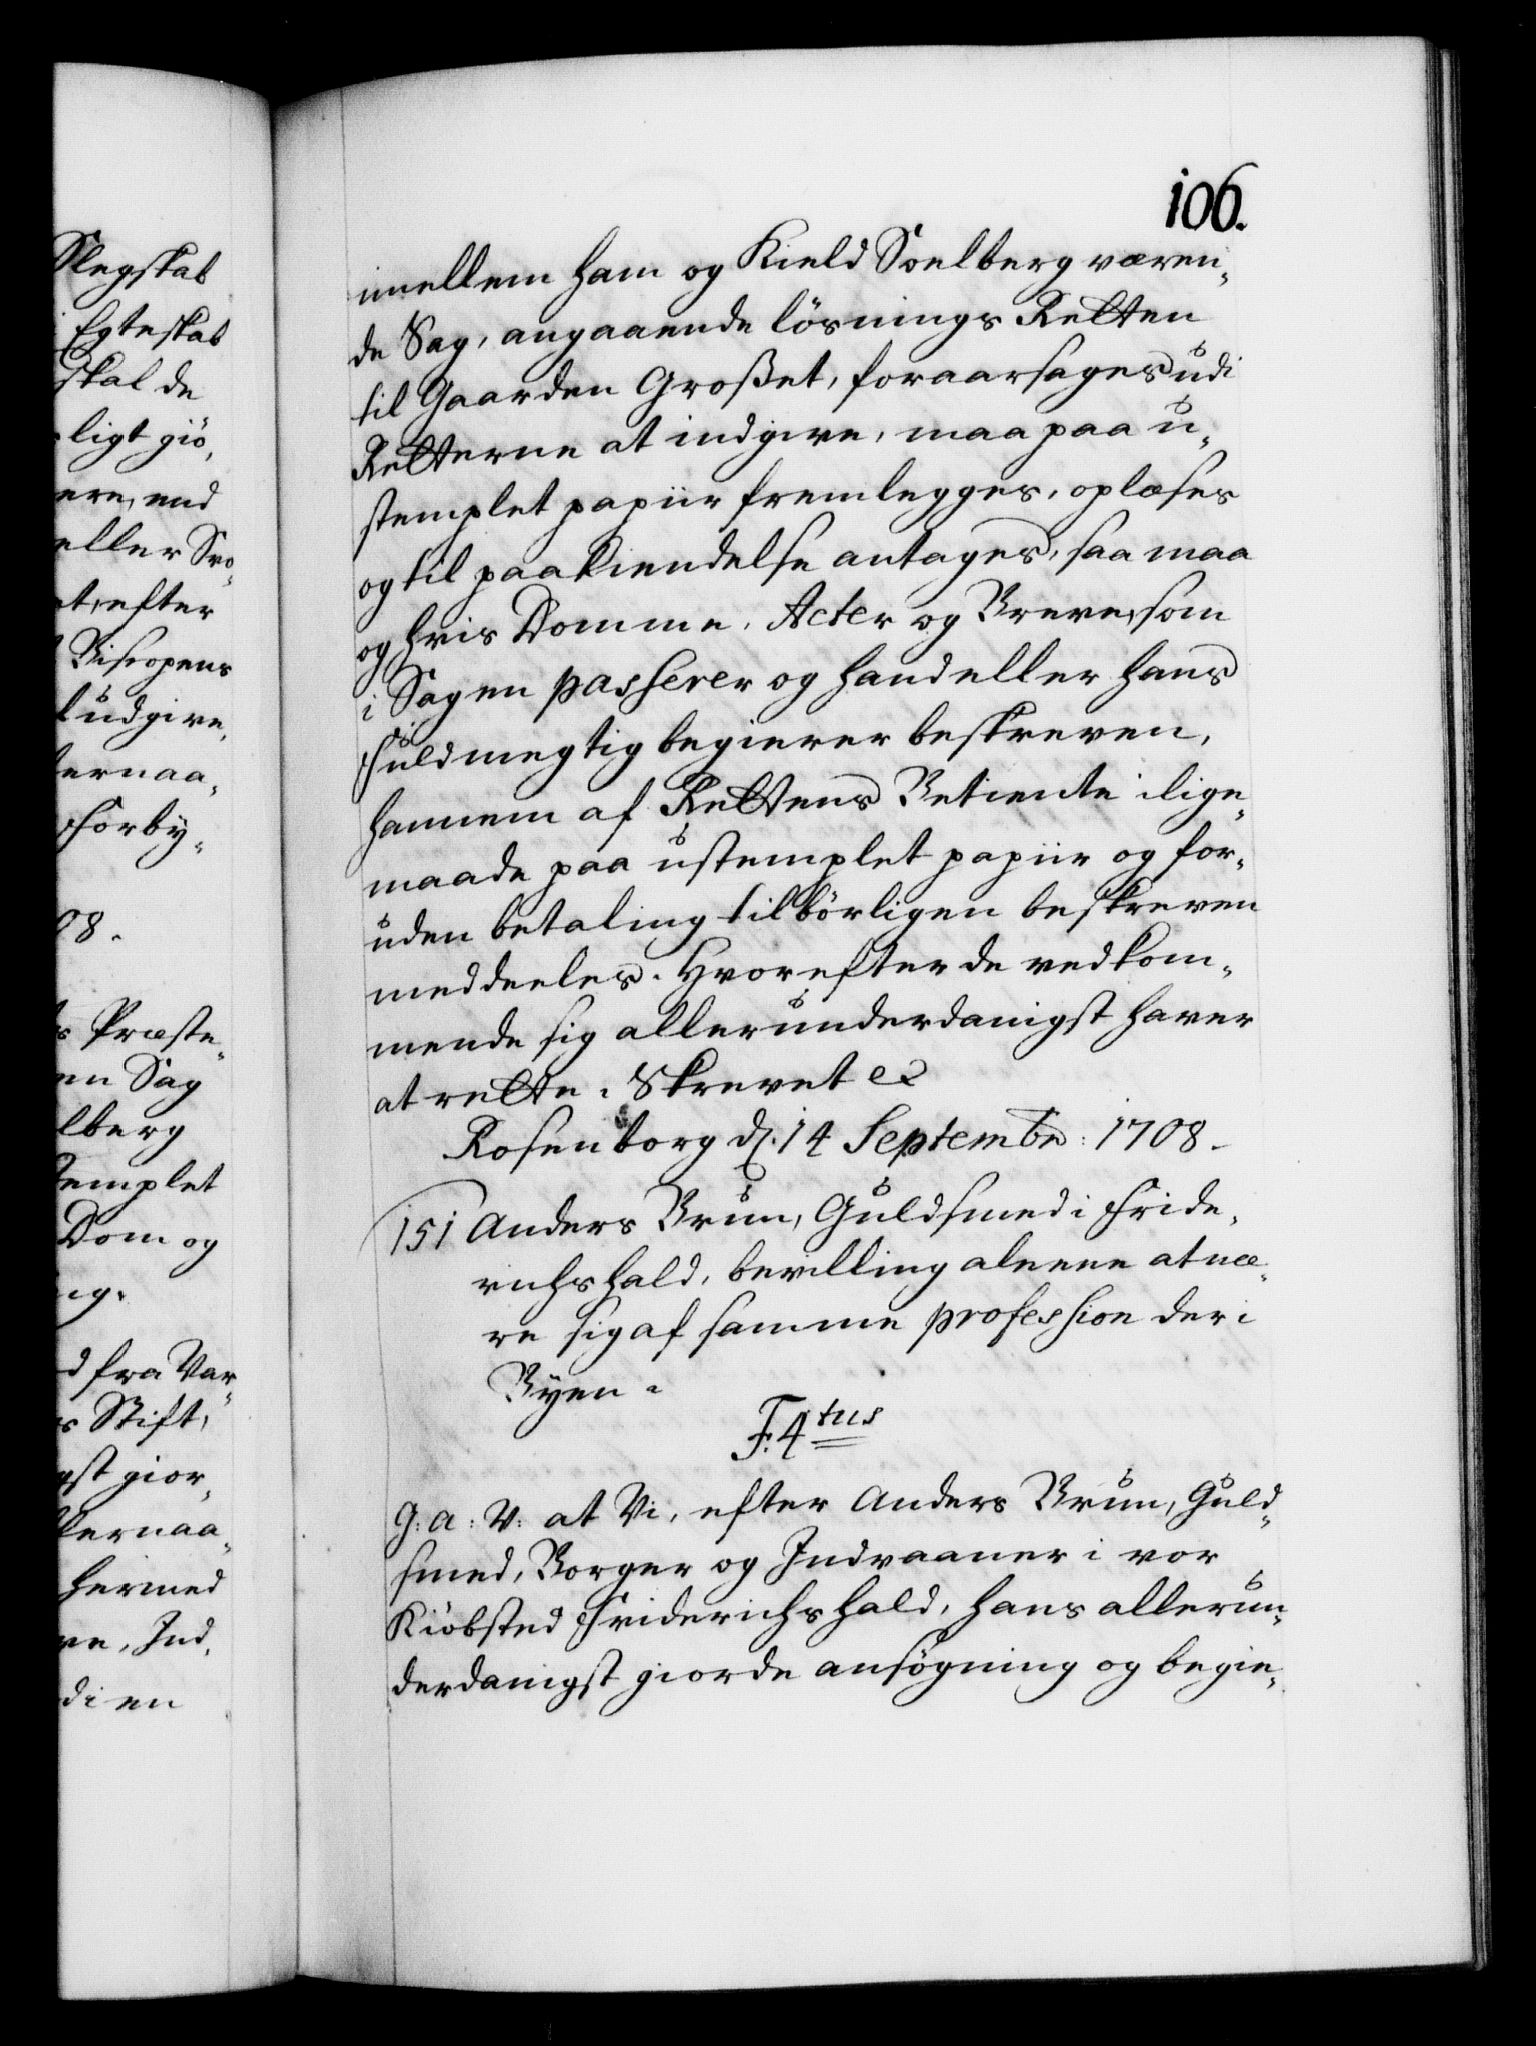 Slegskab
Egteskab
skal de
ligt giö,
ere, end
eller Svo-
et, efter
Biscopens
udgive,
ternaa,
forby,
08.
Præste,
en Sag
lberg
templet
Dom og
ig.
d fra Var,
s Stift,
gst gior,
ternaa,
hermed
re, Ind,
di en
106.
imellem ham og Kield Soelberg væren,
de Sag, angaaende lösnings Retten
til Gaarden Großet, foraarsages udi
Retterne at indgive, maa paa u,
stemplet papiir fremlegges, oplæses
og til paakiendelse antages, saa maa
og hvis Domme, Acter og Breve, som
i Sagen passerer og hand eller hans
fuldmegtig begierer beskreven,
hannem af Rettens Betiente i lige,
maade paa ustemplet papiir og for,
uden betaling tilbörligen beskreven
meddeeles. Hvorefter de vedkom,
mende sig allerunderdanigst haver
at rette. Skrevet ec
Rosenborg d. 14 Septembr: 1708.
151 Anders Brun, Guldsmed i Fride,
richshald, bevilling aleene at næ,
re sig af samme profession der i
Byen.
F. 4tus
G: A: V: at Vi, efter Anders Brun, Guld,
smed, Borger og Indvaaner i vor
Kiöbsted Friderichshald, hans allerun,
derdanigst giorde ansögning og begie,